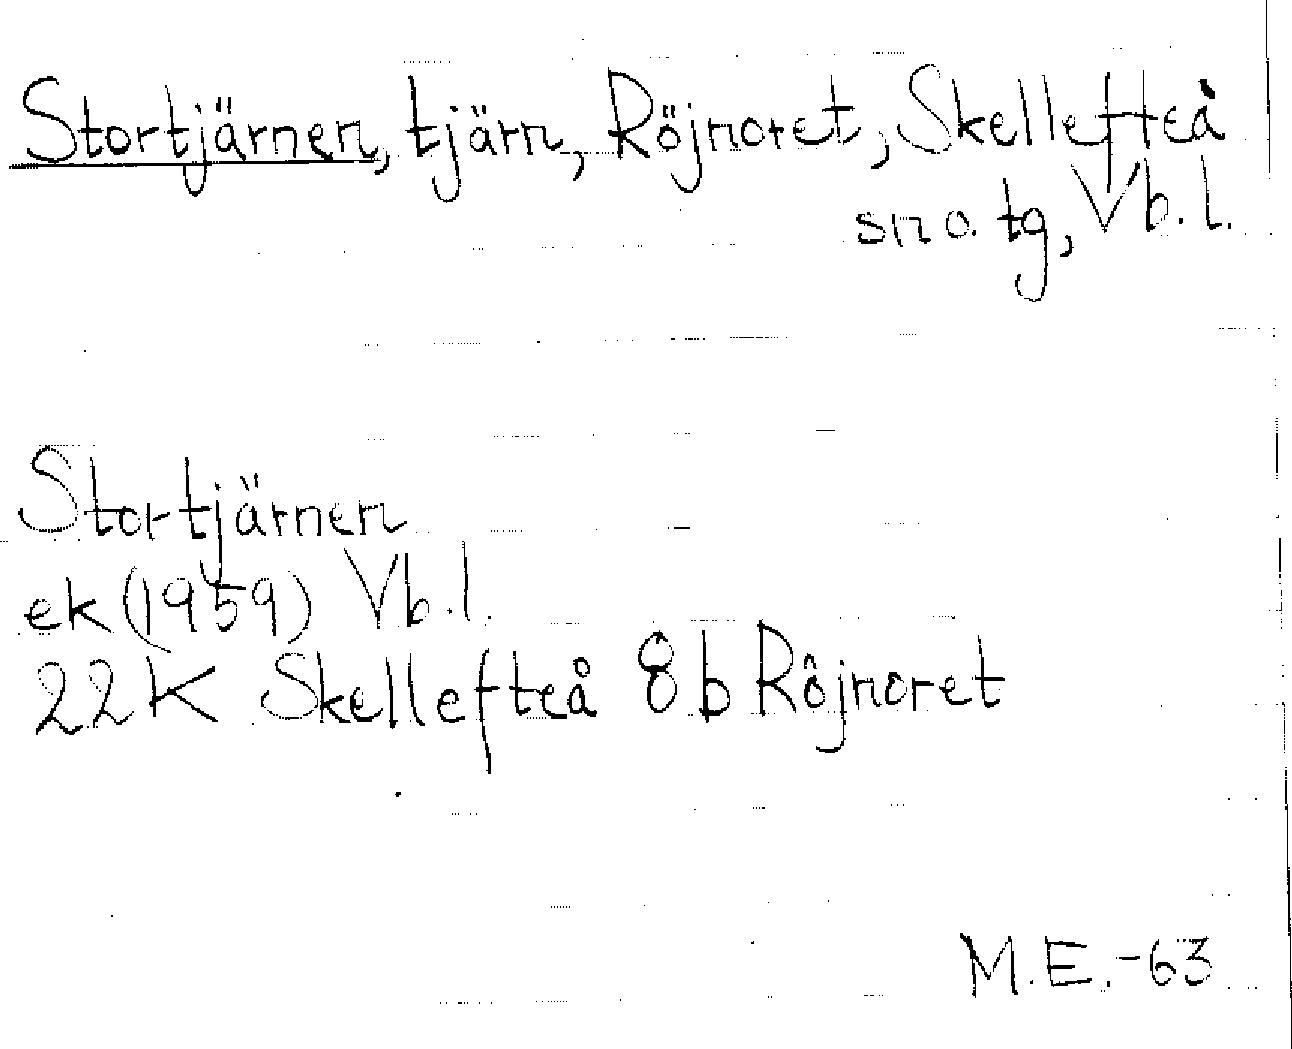 Stortjärnen, tjärn, Röjnoret, Skellefteå
sn o. tg, Vb. l.
Stortjärnen
ek (1959) Vb. l.
22 K Skellefteå 8 b Röjnoret
M. E. -63